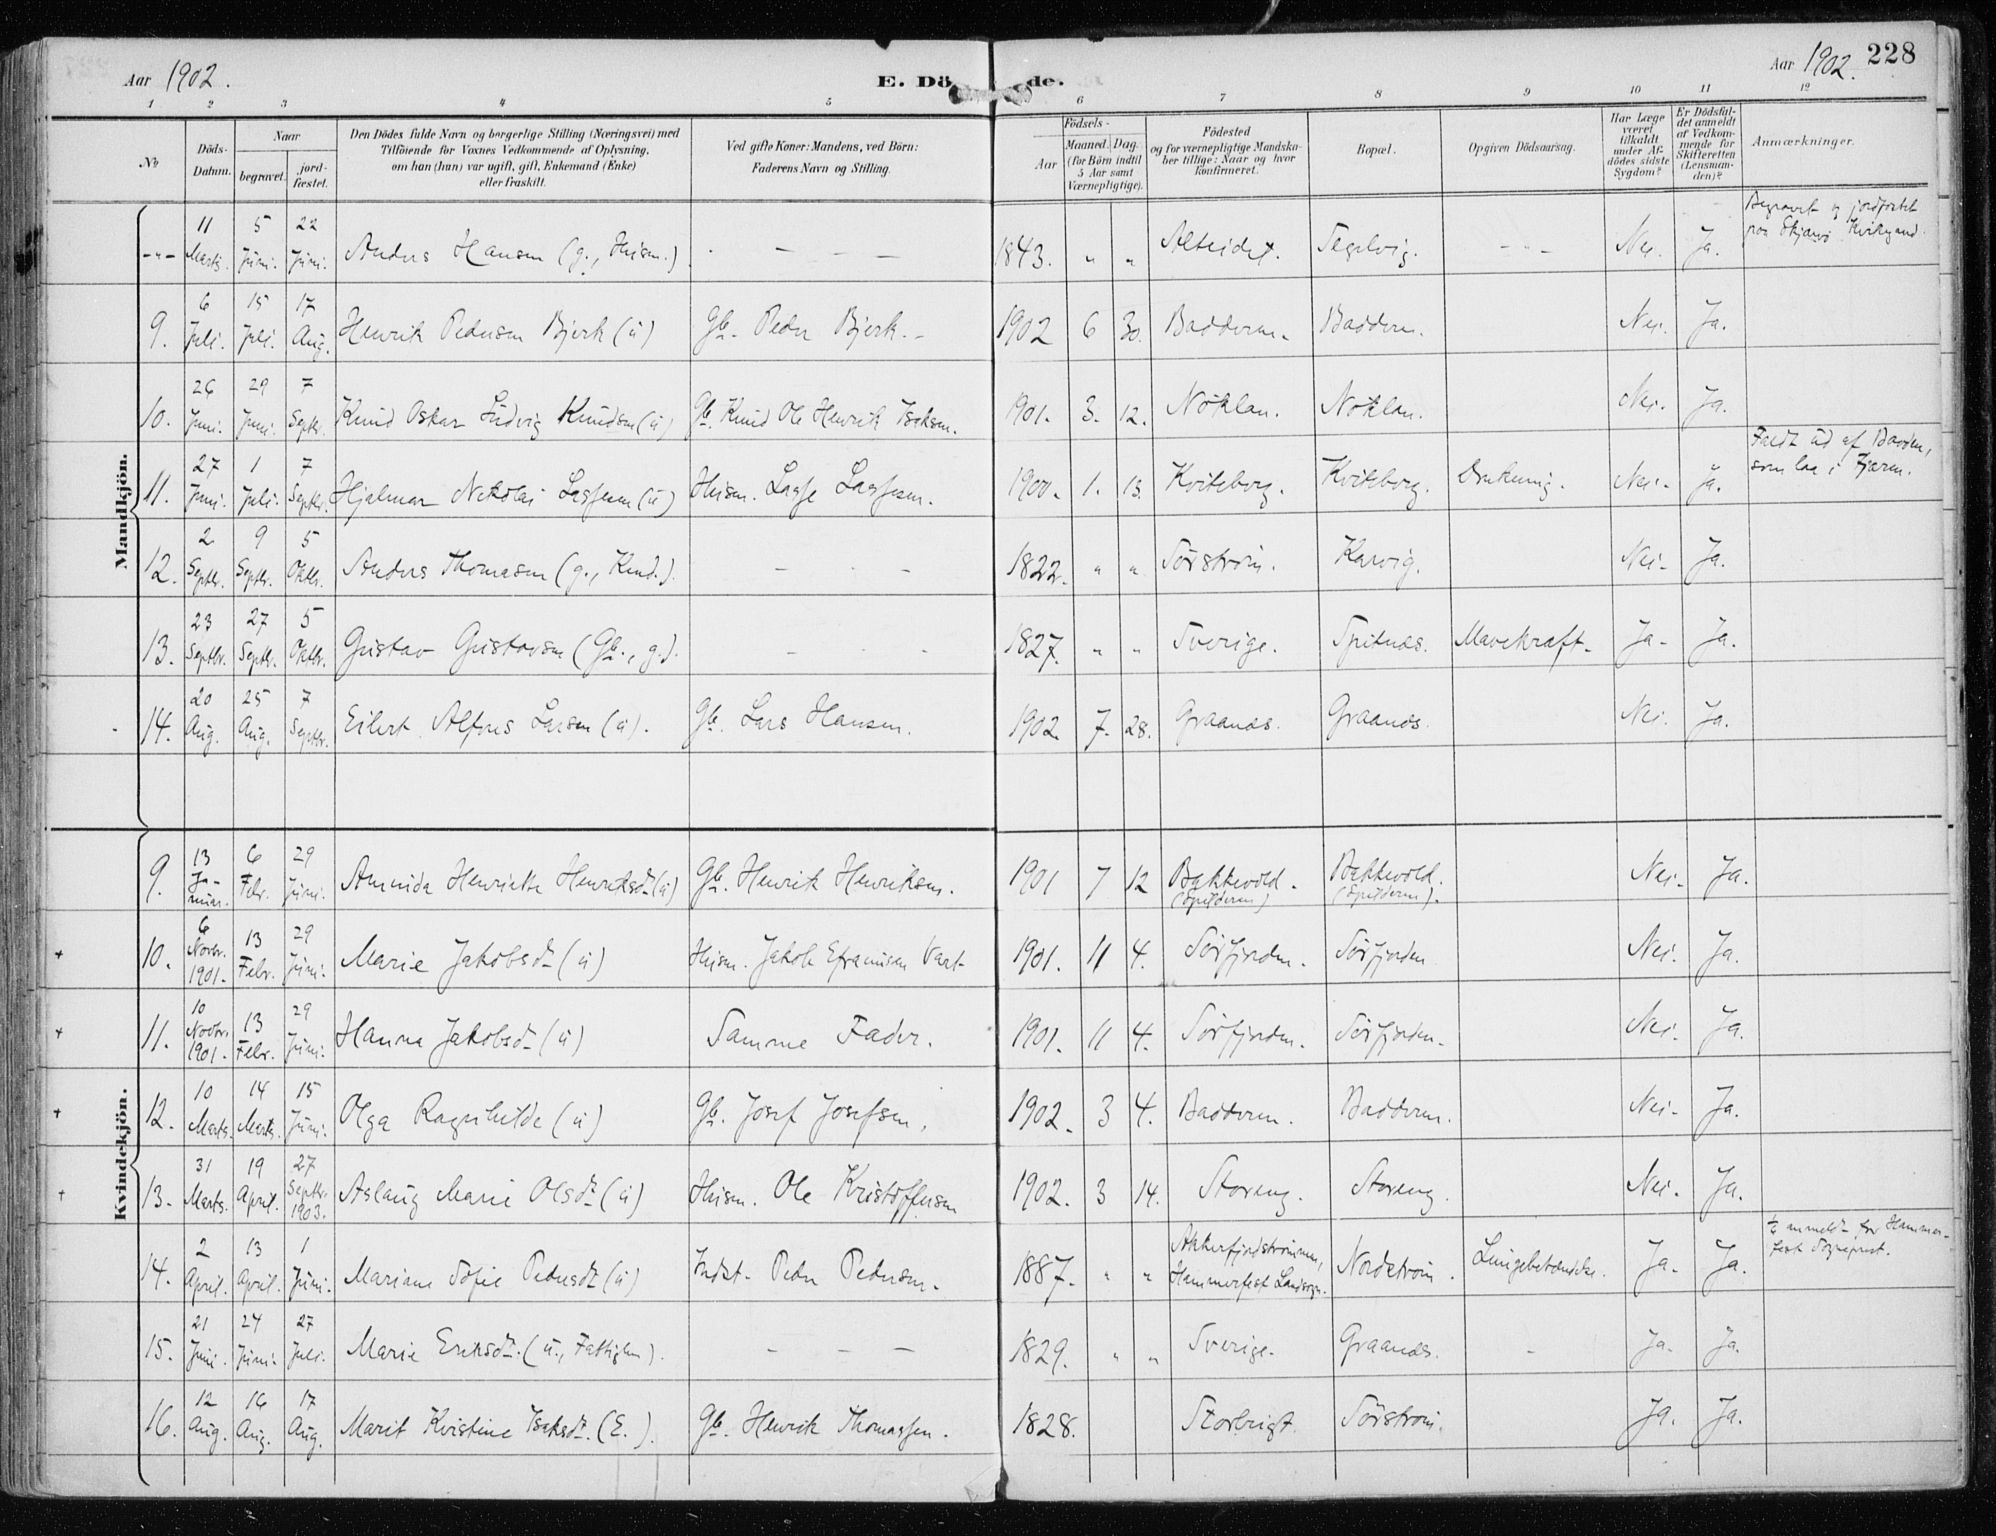 Aar 1902.
E. Dö
de.
Aar 1902. 228
1 2 3 4 5 6 7 8 9 10 11 12
No
Döds-Datum.
Naar
begravet.
jord-fæstet.
Den Dödes fulde Navn og borgerlige Stilling (Næringsvei) med
Tilföiende for Voxnes Vedkommende af Oplysning,
om han (hun) var ugift, gift, Enkemand (Enke)
eller fraskilt.
Ved gifte Koner: Mandens, ved Börn:
Faderens Navn og Stilling.
Födsels-
Aar
Maaned. Dag.
(for Börn indtil
5 Aar samt
Værnepligtige).
Födested
og for værnepligtige Mandska-
ber tillige: Naar og hvor
konfirmeret.
Bopæl.
Opgiven Dödsaarsag.
Har Læge
været
tilkaldt
under Af-
dödes sidste
Sygdom?
Er Dödsfal-
det anmeldt
af Vedkom-
mende for
Skifteretten
(Lensman-
den)?
Anmærkninger.
Mandkjön.
-"- 11 Marts. 5 Juni. 22 Juni. Anders Hansen (g., Huism.) - - - 1843. " " Alteidet. Segelvig. - - - Nei. Ja. Begravet og jordfæstet paa Skjærvø
9. 6 Juli. 15 Juli. 17 Aug. Henrik Pedersen Bjerk (ú) Gb. Peder Bjerk. - 1902 6 30. Badderen. Badderen. Nei. Ja.
10. 26 Juni. 29 Juni. 7 Septbr. Knud Oskar Ludvig Knudsen (ú) Gb. Knud Ole Henrik Isaksen. 1901. 3. 12. Nöklan. Nöklan. Nei. Ja.
11. 27 Juni. 1 Juli. 7 Septbr. Hjalmar Nikolai Lassesen (ú) Huism. Lasse Lassesen. 1900. 1. 13. Kviteborg. Kviteborg. Drukning. Nei. Ja. Faldt ud af Baaden, som laa i Fjæren.
12. 2 Septbr. 9 Septbr. 5 Oktbr. Anders Thomasen (g., Kend.). - - - 1822. " " Sörström. Karvig. Nei. Ja.
13. 23 Septbr. 27 Septbr. 5 Oktbr. Gustav Gustavsen (Gb., g.). - - - 1827. " " Sverige. Spitnæs. Mavekræft. Ja. Ja.
14. 20 Aug. 25 Aug. 7 Septbr. Eilert Alfons Larsen (ú). Gb. Lars Hansen. 1902. 7. 28. Graanæs. Graanæs. Nei. Ja.
Kvindekjön.
9. 13 Januar. 6 Febr. 29 Juni. Amunda Henriette Henriksdt. (ú) Gb. Henrik Henriksen. 1901 7 12 Bakkevold. (Spilderen) Bakkevold. (Spilderen). Nei. Ja.
+ 10. 6 Novbr. 1901. 13 Febr. 29 Juni. Marie Jakobsdt. (ú) Huism. Jakob Efraimsen Vaat- 1901. 11 4. Sörfjorden. Sörfjorden Nei. Ja.
+ 11. 10 Novbr. 1901. 13 Febr. 29 Juni. Hanna Jakobsdt. (ú) Samme Fader. 1901. 11 4. Sörfjorden. Sörfjorden. Nei. Ja.
+ 12. 10 Marts. 14 Marts. 15 Juni. Olga Ragnhilde (ú) Gb. Josef Josefsen. 1902. 3 4. Badderen. Badderen. Nei. Ja.
+ 13. 31 Marts. 19 April. 27 Septbr. 1903. Aslaug Marie Olsdt. (ú) Huism. Ole Kristoffersen 1902. 3 14. Storeng. Storeng. Nei. Ja.
14. 2 April. 13 April. 1 Juni. Mariane Sofie Pedersdt. (ú) Indst. Peder Pedersen. 1887. " " Akkerfjordströmmen, Hammerfest Landsogn. Nordström. Lungebetændelse. Ja. Ja. anmeldt for Hammerfest Sognepræst.
15. 21 Juni. 24 Juni. 27 Juli. Marie Eriksdt. (ú., Fattiglem). - - - 1829. " " Sverige. Graanæs. - Ja. Ja.
16. 12 Aug. 16 Aug. 17 Aug. Marit Kristine Isaksdt. (E.). Gb. Henrik Thomassen. 1828. Storbugt. Sörström. Ja. Ja.